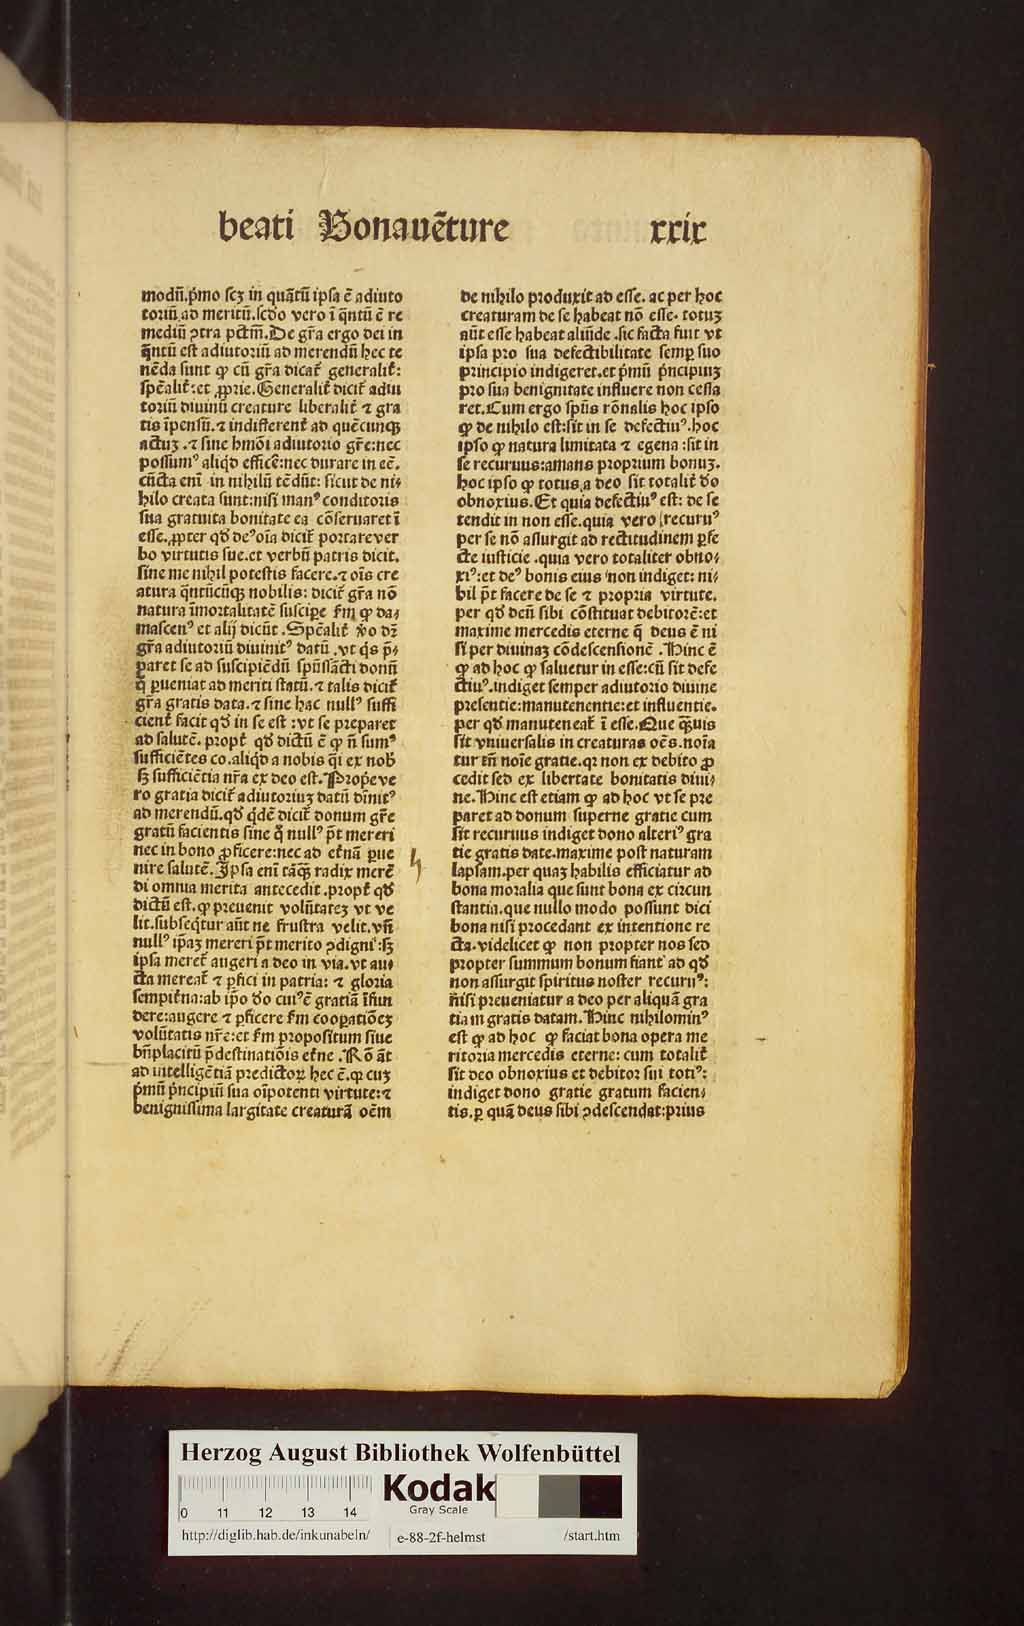 beati Bonauēture xxix
modū.p̄mo scꝫ in quātū ipsa ē adiuto
toriū ad meritū.scdo vero ī q̄ntū ē re
mediū ꝯtra pctm̄.De gr̄a ergo dei in
q̄ntū est adiutoriū ad merendū hec te
nēda sunt ꝙ cū gr̄a dicat̄ generalit̄:
spēalit̄:et ꝓprie.Generalit̄ dicit̄ adiu
toriū diuinū creature liberalit̄ ⁊ gra
tis īpensū.⁊ indifferent̄ ad quēcunqꝫ
actuꝫ.⁊ sine hmōi adiutorio gr̄e:nec
possumꝰ aliqd̄ efficē:nec durare in eē.
cūcta enī in nihilū tēdūt: sicut de ni⸗
hilo creata sunt:nisi manꝰ conditoris
sua gratuita bonitate ea cōseruaret ī
esse.ꝓpter qd̄ deꝰ oīa dicit̄ portare ver
bo virtutis sue.et verbū patris dicit.
sine me nihil potestis facere.⁊ oīs cre
atura q̄ntūcūqꝫ nobilis: dicit̄ gr̄a nō
natura īmortalitatē suscipe fm̄ ꝙ da⸗
mascenꝰ et alij dicūt.Spēalit̄ v̄o dꝛ̄
gr̄a adiutoriū diuinitꝰ datū.vt q̇s p̄⸗
paret se ad suscipiēdū spūssācti donū
q̄ ꝑueniat ad meriti statū.⁊ talis dicit̄
gr̄a gratis data.⁊ sine hac nullꝰ suffi
cient̄ facit qd̄ in se est:vt se preparet
ad salutē. propt̄ qd̄ dictū ē ꝙ n̄ sumꝰ
sufficiētes co.aliqd̄ a nobis q̄i ex nob̄
sꝫ sufficiētia nr̄a ex deo est.Prop̄e ve
ro gratia dicit̄ adiutoriuꝫ datū dīnitꝰ
ad merendū.qd̄ q̇dē dicit̄ donum gr̄e
gratū facientis sine q̄ nullꝰ p̄t mereri
nec in bono ꝓficere:nec ad et̄nā ꝑue
nire salutē.Ipsa enī tāq̄ꝫ radix merē
di omnia merita antecedit.propt̄ qd̄
dictū est.ꝙ preuenit volūtateꝫ vt ve
lit.subseq̄tur aūt ne frustra velit.vn̄
nullꝰ ip̄aꝫ mereri p̄t merito ꝯdigni:sꝫ
ipsa meret̄ augeri a deo in via.vt au⸗
cta mereat̄ ⁊ ꝑfici in patria: ⁊ gloria
sempit̄na:ab ip̄o d̄o cuiꝰ ē gratiā īfun
dere:augere ⁊ ꝑficere fm̄ cooꝑationeꝫ
volūtatis nr̄e:et fm̄ propositum siue
bn̄placitū p̄destinatiōis et̄ne.Rō āt
ad intelligētiā predictoꝝ hec ē.ꝙ cuꝫ
p̄mū p̄ncipiū sua oīpotenti virtute:⁊
benignissima largitate creaturā oēm
de nihilo produxit ad esse. ac per hoc
creaturam de se habeat nō esse. totuꝫ
aūt esse habeat aliūde.sic facta fuit vt
ipsa pro sua defectibilitate semꝑ suo
principio indigeret.et p̄mū p̄ncipiuꝫ
pro sua benignitate influere non cessa
ret.Cum ergo spūs rōnalis hoc ipso
ꝙ de nihilo est:sit in se defectiuꝰ.hoc
ipso ꝙ natura limitata ⁊ egena:sit in
se recuruus:amans proprium bonuꝫ.
hoc ipso ꝙ totus a deo sit totalit̄ d̄o
obnoxius.Et quia defectiuꝰ est: de se
tendit in non esse.quia vero recuruꝰ
per se nō assurgit ad rectitudinem ꝑfe
cte iusticie.quia vero totaliter obno⸗
xiꝰ:et deꝰ bonis eius non indiget: ni⸗
hil p̄t facere de se ⁊ propria virtute.
per qd̄ deū sibi cōstituat debitorē:et
maxime mercedis eterne q̄ deus ē ni
si per diuinaꝫ cōdescensionē.Hinc ē
ꝙ ad hoc ꝙ saluetur in esse:cū sit defe
ctiuꝰ.indiget semper adiutorio diuine
presentie:manutenentie:et influentie.
per qd̄ manuteneat̄ ī esse.Que q̄ꝫuis
sit vniuersalis in creaturas oēs.noīa
tur tn̄ noīe gratie.qꝛ non ex debito ꝓ
cedit sed ex libertate bonitatis diui⸗
ne.Hinc est etiam ꝙ ad hoc vt se pre
paret ad donum superne gratie cum
sit recuruus indiget dono alteriꝰ gra
tie gratis date.maxime post naturam
lapsam.per quaꝫ habilis efficiatur ad
bona moralia que sunt bona ex circun
stantia.que nullo modo possunt dici
bona nisi procedant ex intentione re
cta.videlicet ꝙ non propter nos sed
propter summum bonum fiant ad qd̄
non assurgit spiritus noster recuruꝰ:
nisi preueniatur a deo per aliquā gra
tiam gratis datam.Hinc nihilominꝰ
est ꝙ ad hoc ꝙ faciat bona opera me
ritoria mercedis eterne: cum totalit̄
sit deo obnoxius et debitor sui totiꝰ:
indiget dono gratie gratum facien⸗
tis.ꝑ quā deus sibi ꝯdescendat:prius
Herzog August Bibliothek Wolfenbüttel
Kodak
Gray Scale
0 11 12 13 14
http://diglib.hab.de/inkunabeln/ e-88-2f-helmst /start.htm